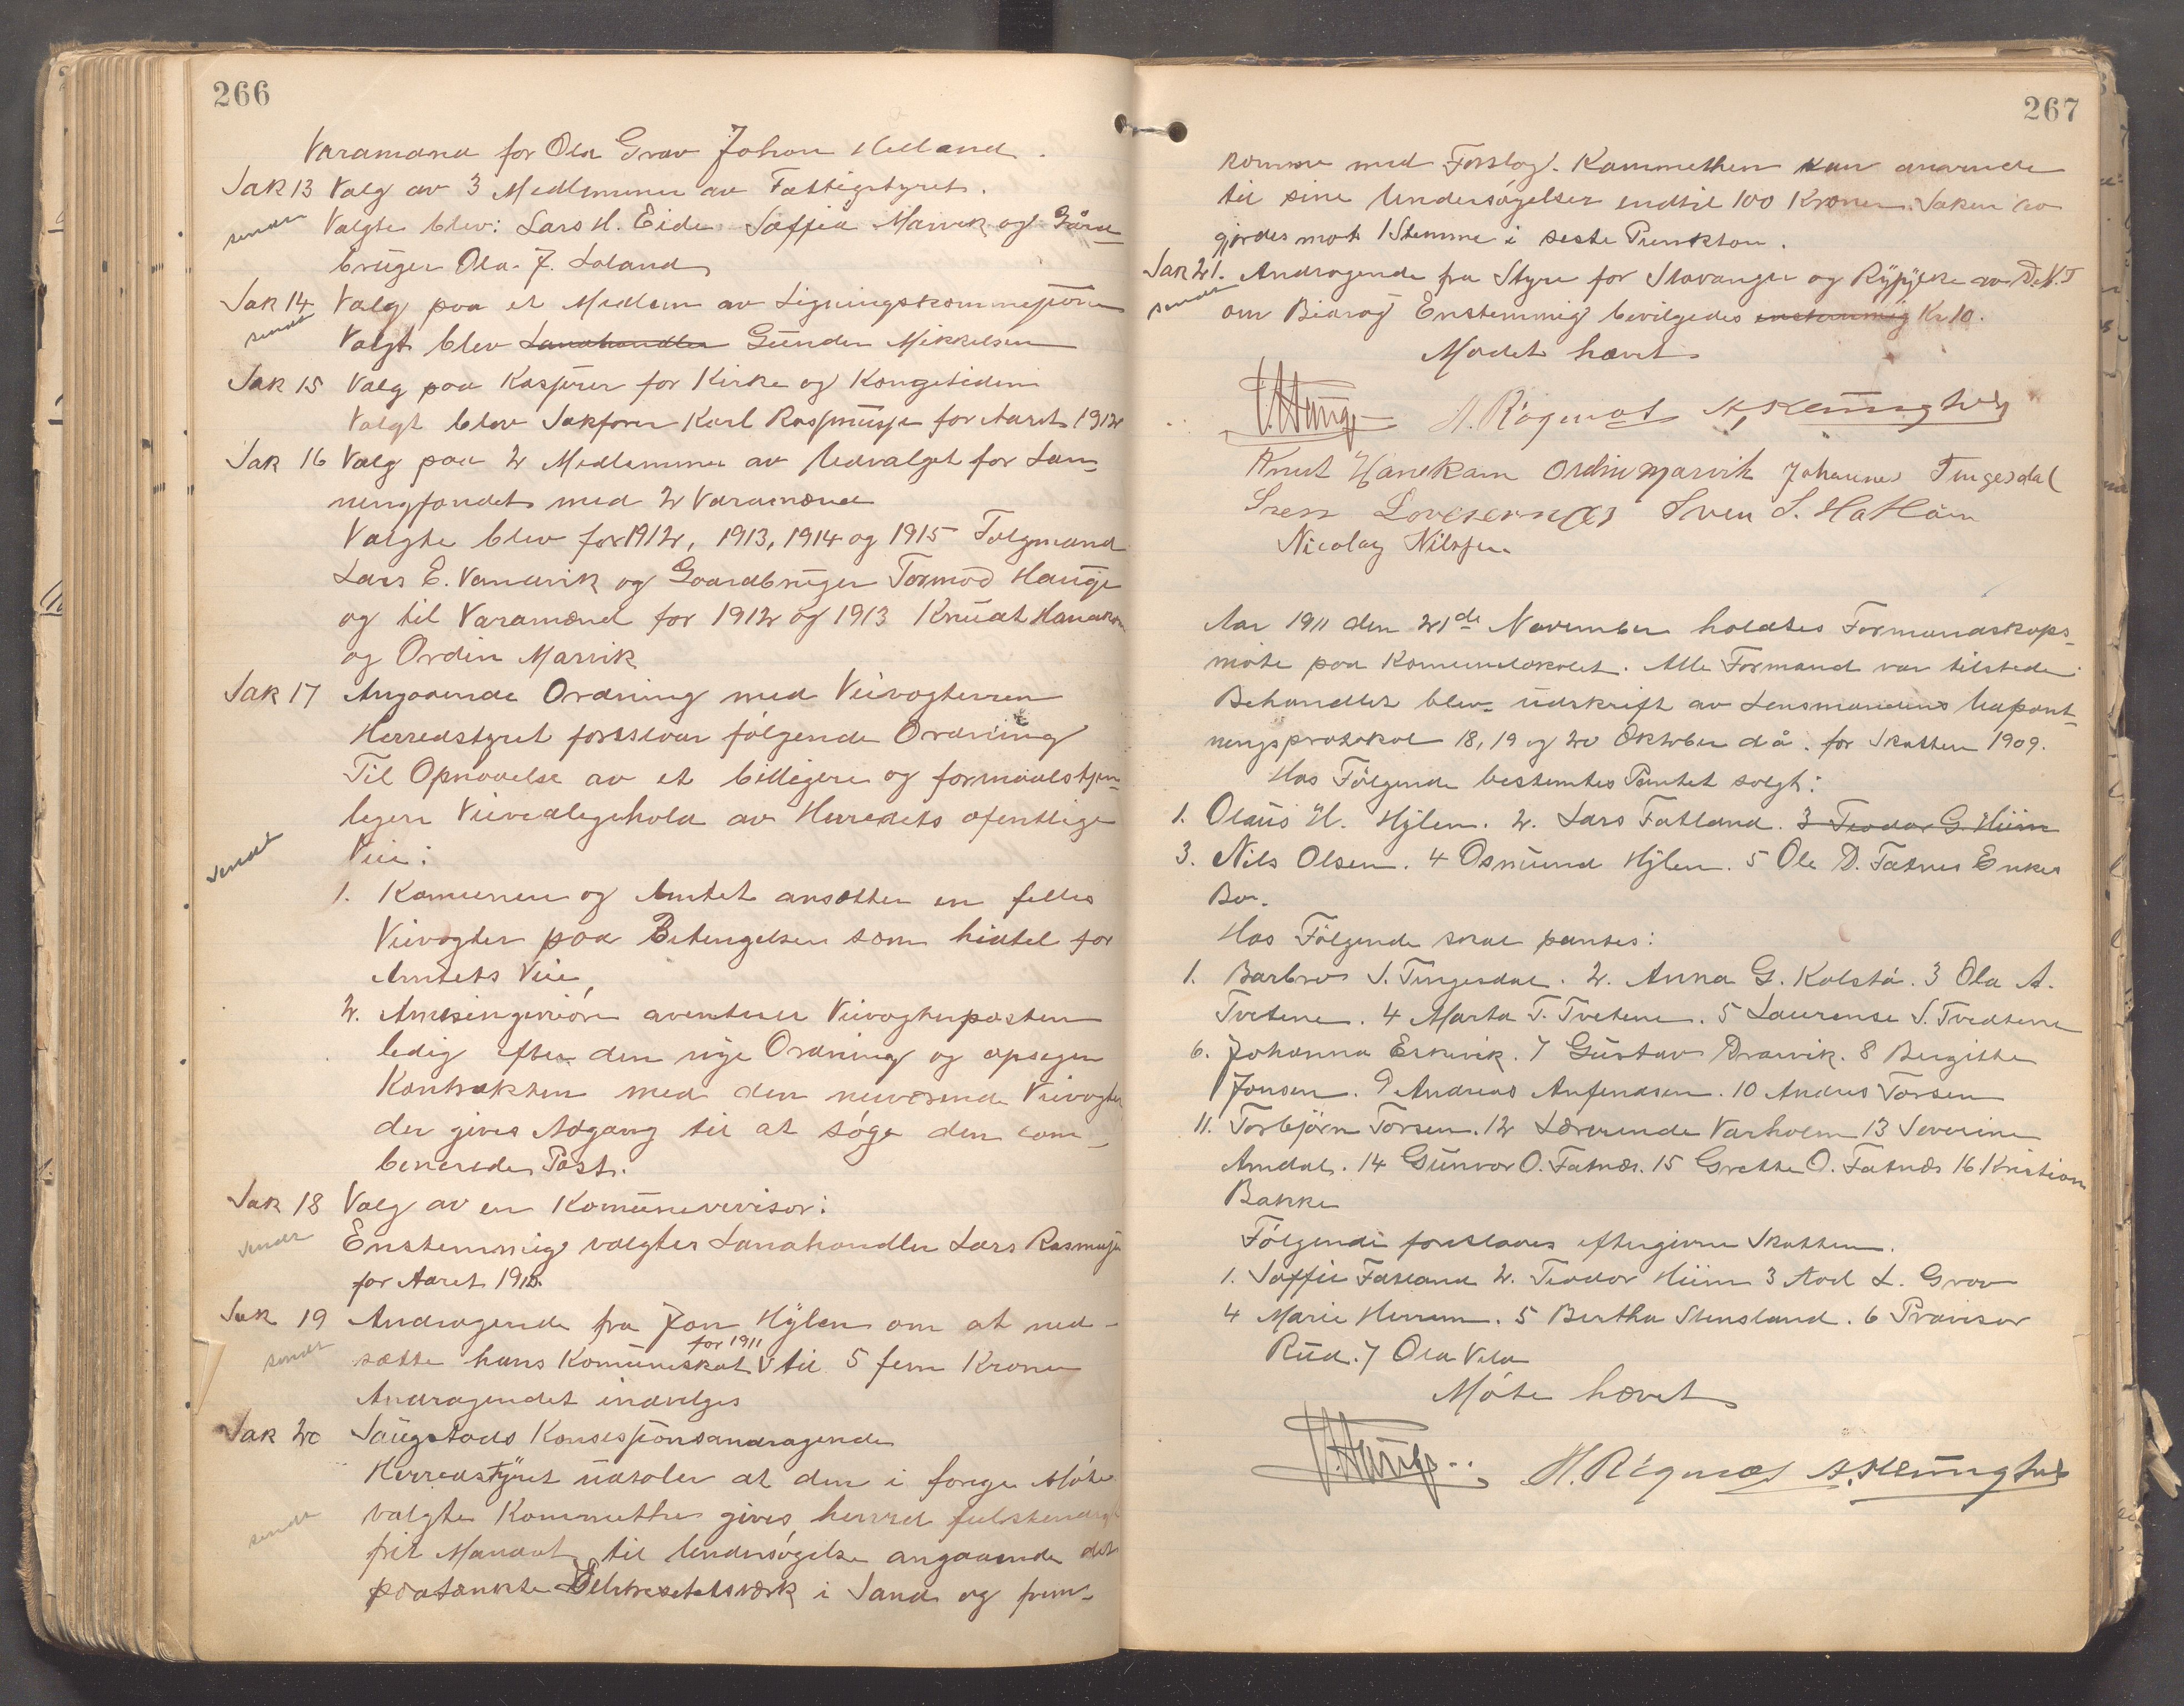 266
Varamand for Ola Grov Johan Helland.
Sak 13 Valg av 3 Medlemmer av Fattigstyret.
sendt Valgte blev: Lars H. Eide Saffia Marvik og Gård
bruger Ola. J. Løland
Sak 14 Valg paa et Medlem av Ligningskommisjonen
sendt Valgt blev Landhandler Gunder Mikkelsen
Sak 15 Valg paa Kasjerer for Kirke og Kongetiden
Valgt blev Sakfører Karl Rasmusse for Aaret 1912
Sak 16 Valg paa 2 Medlemmer av Udvalget for Lan-
ningfondet med 2 Varamænd
Valgte blev for 1912, 1913, 1914 og 1915 Tolgmand
Lars E. Vandvik og Gaardbruger Tormod Hauge
og til Varamænd for 1912 og 1913 Knudt Hanakam
og Ordin Marvik
Sak 17 Angaaende Ordning med Veivogteren
Herredstyret foreslaar følgende Ordning
Til Opnaaelse av et billigere og formaalstjen-
sendt ligere Veivedligehold av Herredets ofentlige
Veie:
1. Komunen og Amtet ansætter en felles
Veivogter paa Betengelser som hidtil for
Amtets Veie,
2. Amtsingeniøren aventerer Veivogterposten
ledig efter den nye Ordning og opsegen
Kontrakten med den nuværende Veivogter
der gives Adgang til at søge den com-
benerede Post.
Sak 18 Valg av en Komunerevisor:
sendt Enstemmig valgtes Landhandler Lars Rasmusse
for Aaret 1912.
Sak 19 Andragende fra Jon Hylen om at ned-
for 1911
sendt sætte hans Komuneskat V til 5 fem Kroner
Andragendet indvilges
Sak 20 Saugstads Konsesjonsandragende
Herredstyret udtaler at den i forige Møte
sendt valgte Kommethe gives herved fulstendigt
frit Mandat til Undersøgelse angaaende det
paatænkte Eletresetetsværk i Sand og frem-
267
komme med Forslag. Kammetheen kan anvende
til sine Undersøgelser indtil 100 Kroner. Saken av
gjordes mot 1 Stemme i seste Punktou.
Sak 21. Andragende fra Styre for Stavanger og Ryfylke av D.N.T
sendt om Bidrag Enstemmig bevilgedes enstemmig Kr 10.
Mødet hævet
T. Hauge H. Rógnæs A. Kleiungtveg
Knut Hanekam Ordin Marvik Johannes Tengesdal
Sven Lovesernæs Sven S. Hatløin
Nicolay Nilssen.
Aar 1911 den 21de November holdtes Formandskaps-
møte paa Komunelokalet. Alle Formænd var tilstede
Behandlet blev udskrift av Lensmandens Udpant-
ningsprotokol 18, 19 og 20 Oktober då. for Skatten 1909.
Hos Følgende bestemtes Pantet solgt:
1. Olaus H. Hylen. 2. Lars Fatland. 3 Teodor G. Hiim
3. Nils Olsen. 4 Osmund Hylen. 5 Ole D. Fatnes Enkes
Bo.
Hos Følgende skal pantes:
1. Barbro S. Tengesdal. 2. Anna G. Kolstø. 3 Ola A.
Tvetene. 4 Marta T. Tvetene. 5 Laurense S. Tvedtene
6. Johanna Erkevik. 7 Gustav Drarvik. 8 Bergithe
Jonsen. 9 Andreas Anfendsen. 10 Andres Torsen
11. Torbjørn Torsen. 12 Lærerinde Varholm 13 Severine
Amdal. 14 Gunvor O. Fatnes. 15 Grethe O. Fatnæs 16 Kristian
Bakke
Følgende foreslaaes eftergivne Skatten.
1. Saffie Fatland 2. Teodor Hiim 3 Aad L. Grov
4 Marie Herrem. 5 Bertha Stensland. 6 Provisor
Rud. 7 Ola Vela
Møte hævet
T. Hauge H. Rógnæs A. Kleiungtveg